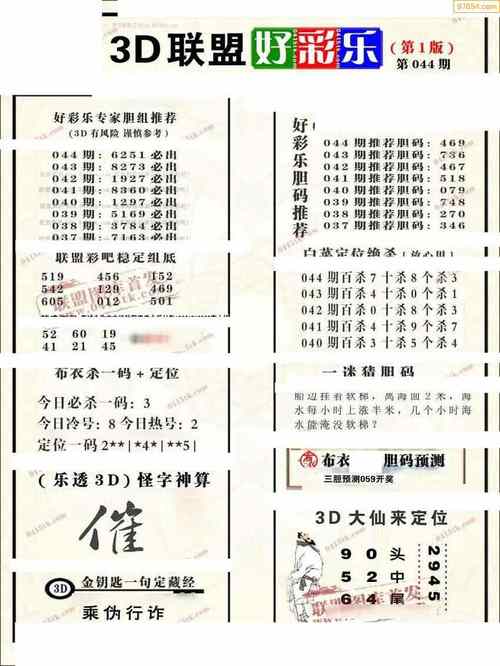 97654.com
3D联盟好彩乐
(第1版)
第044期
好彩乐专家胆组推荐
(3D有风险 谨慎参考)
044期: 6251必出
043期: 8273必出
042期: 1927必出
041期: 8360必出
040期: 1297必出
039期: 5169必出
038期: 3784必出
037期: 7163必出
联盟彩吧稳定组底
519 456 152
542 129 469
605 012 501
52 60 19
41 21 45
布衣杀一码+定位
今日必杀一码: 3
今日冷号: 8 今日热号: 2
定位一码 2**|*4*|**5|
(乐透3D)怪字神算
催
3D 金钥匙一句定藏经
乘伪行诈
好彩乐胆码推荐
044期推荐胆码: 469
043期推荐胆码: 736
042期推荐胆码: 467
041期推荐胆码: 518
040期推荐胆码: 079
039期推荐胆码: 748
038期推荐胆码: 270
037期推荐胆码: 346
白菜定位绝杀(放心胆)
044期百杀7十杀8个杀3
043期百杀4十杀0个杀1
042期百杀8十杀3个杀0
041期百杀4十杀9个杀3
040期百杀3十杀5个杀4
一迷猜胆码
船边挂着软梯,离海面2米,海
水每小时上涨半米,几个小时海
水能淹没软梯?
布衣 胆码预测
三胆预测059开奖
3D大仙来定位
9 0 头
5 2 中
6 4 尾
2945